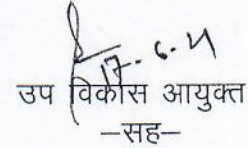 17.6.21
उप विकास आयुक्त
–सह–